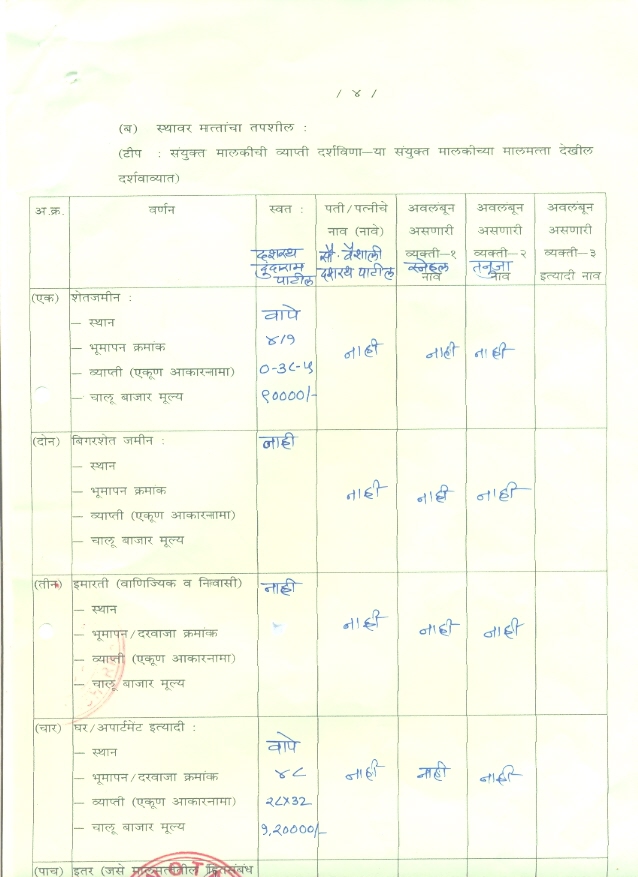 / ४ /
(ब) स्थावर मत्तांचा तपशील :
(टीप : संयुक्त मालकीची व्याप्ती दर्शविणा—या संयुक्त मालकीच्या मालमत्ता देखील
दर्शवाव्यात)
अ.क्र. वर्णन स्वत : पती/पत्नीचे अवलंबून अवलंबून अवलंबून
नाव (नावे) असणारी असणारी असणारी
दशरथ सौ. वैशाली व्यक्ती—१ व्यक्ती—२ व्यक्ती—३
तुंदाराम दशरथ पाटील स्नेहल तनुजा
पाटील नाव नाव इत्यादी नाव
(एक) शेतजमीन :
— स्थान वापे
— भूमापन क्रमांक ४/१ नाही नाही नाही
— व्याप्ती (एकूण आकारनामा) ०-३८-५
— चालू बाजार मूल्य ९००००/-
(दोन) बिगरशेत जमीन : नाही
— स्थान
— भूमापन क्रमांक नाही नाही नाही
— व्याप्ती (एकूण आकारनामा)
— चालू बाजार मूल्य
(तीन) इमारती (वाणिज्यिक व निवासी) नाही
— स्थान
— भूमापन/दरवाजा क्रमांक नाही नाही नाही
— व्याप्ती (एकूण आकारनामा)
— चालू बाजार मूल्य
(चार) घर/अपार्टमेंट इत्यादी :
— स्थान वापे
— भूमापन/दरवाजा क्रमांक ४८ नाही नाही नाही
— व्याप्ती (एकूण आकारनामा) २८x३२
— चालू बाजार मूल्य १,२००००/-
(पाच) इतर (जसे मालमत्तेतील हितसंबंध